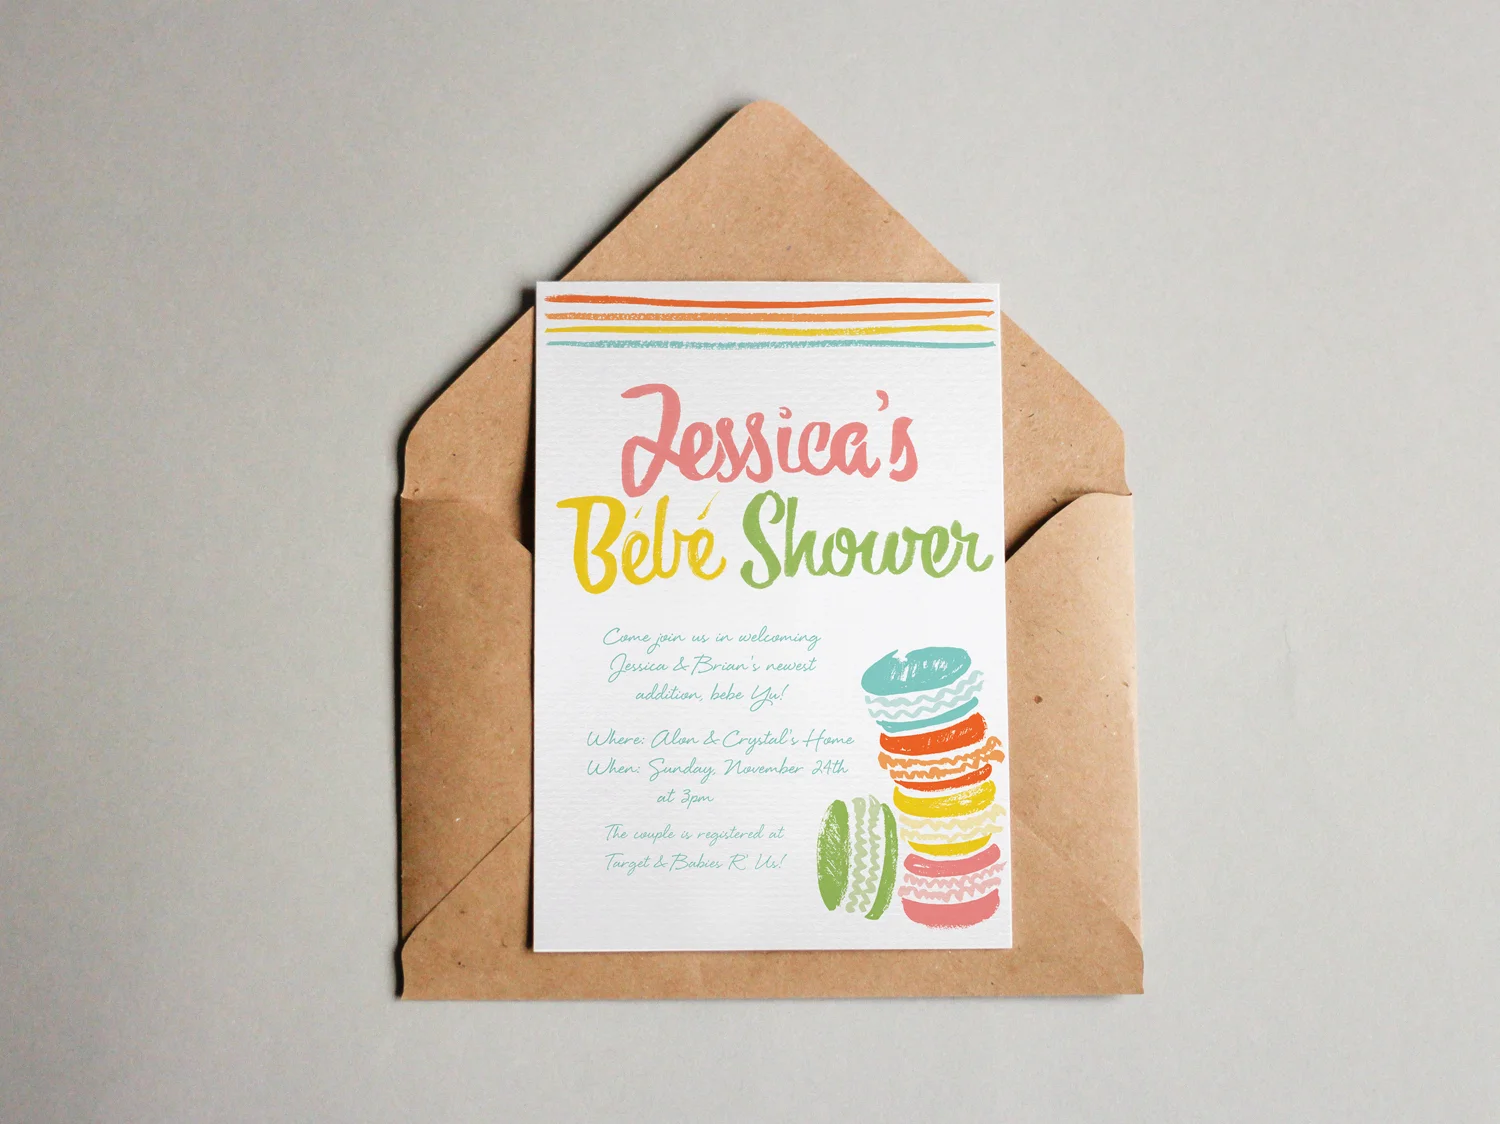 Jessica's
Bébé Shower
Come join us in welcoming
Jessica & Brian's newest
addition, bebe Yu!
Where: Alon & Crystal's Home
When: Sunday, November 24th
at 3pm
The couple is registered at
Target & Babies R' Us!